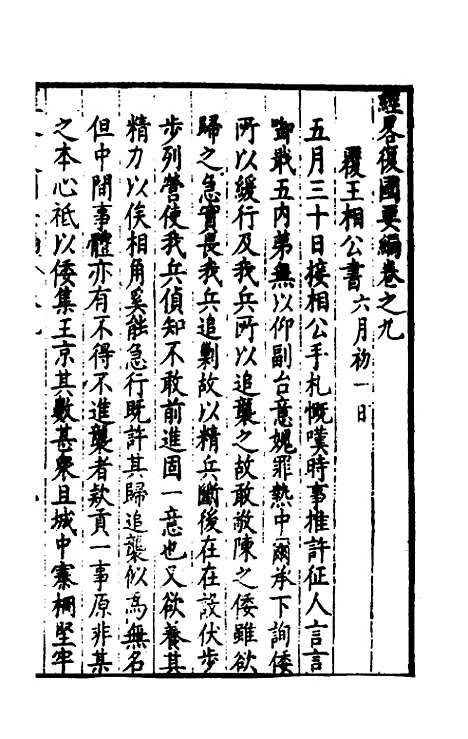 經畧復國要編卷之九
覆王相公書六月初一日
五月三十日接相公手札慨嘆時事推許征人言言
啣戢五内弟無以仰副台意媿罪熱中爾承下詢倭
所以緩行及我兵所以追襲之故敢敬陳之倭雖欲
歸之急實畏我兵追剿故以精兵斷後在在設伏步
步列營使我兵偵知不敢前進固一意也又欲養其
精力以俟相角奚能急行既許其歸追襲似爲無名
但中間事體亦有不得不進襲者欵貢一事原非某
之本心祗以倭集王京其數甚衆且城中寨柵堅牢